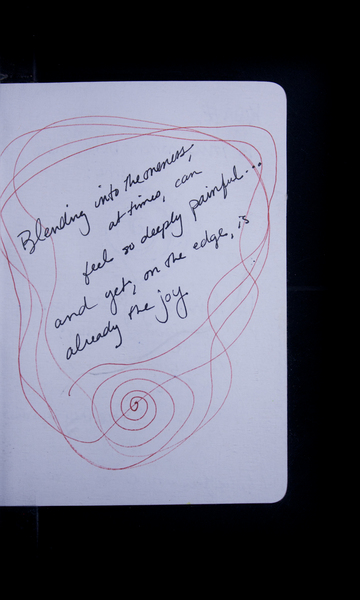 Blending into the oneness,
at times, can
feel so deeply painful...
and yet, on the edge, is
already the joy